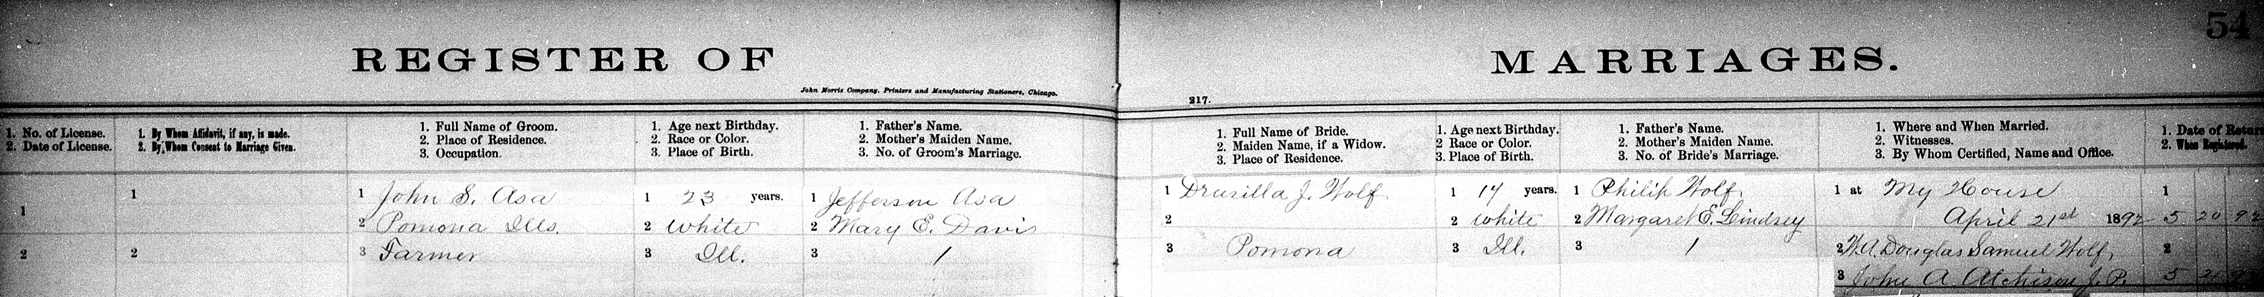 54
REGISTER OF MARRIAGES.
John Morris Company, Printers and Manufacturing Stationers, Chicago.
217.
1. No. of License.
2. Date of License.
1. By Whom Affidavit, if any, is made.
2. By Whom Consent to Marriage Given.
1. Full Name of Groom.
2. Place of Residence.
3. Occupation.
1. Age next Birthday.
2. Race or Color.
3. Place of Birth.
1. Father's Name.
2. Mother's Maiden Name.
3. No. of Groom's Marriage.
1. Full Name of Bride.
2. Maiden Name, if a Widow.
3. Place of Residence.
1. Age next Birthday.
2 Race or Color.
3. Place of Birth.
1. Father's Name.
2. Mother's Maiden Name.
3. No. of Bride's Marriage.
1. Where and When Married.
2. Witnesses.
3. By Whom Certified, Name and Office.
1. Date of Return
2. When Registered.
1
2
1
2
1 John S. Asa
2 Pomona Ills.
3 Farmer
1 23 years.
2 White
3 Ill.
1 Jefferson Asa
2 Mary E. Davis
3 1
1 Drusilla J. Wolf
2
3 Pomona
1 17 years.
2 White
3 Ill.
1 Philip Wolf
2 Margaret E. Lindsey
3 1
1 at My House
April 21st 1892
2 W.A. Douglas Samuel Wolf
3 John A. Atchison J. P.
1
5 20 92
2
5